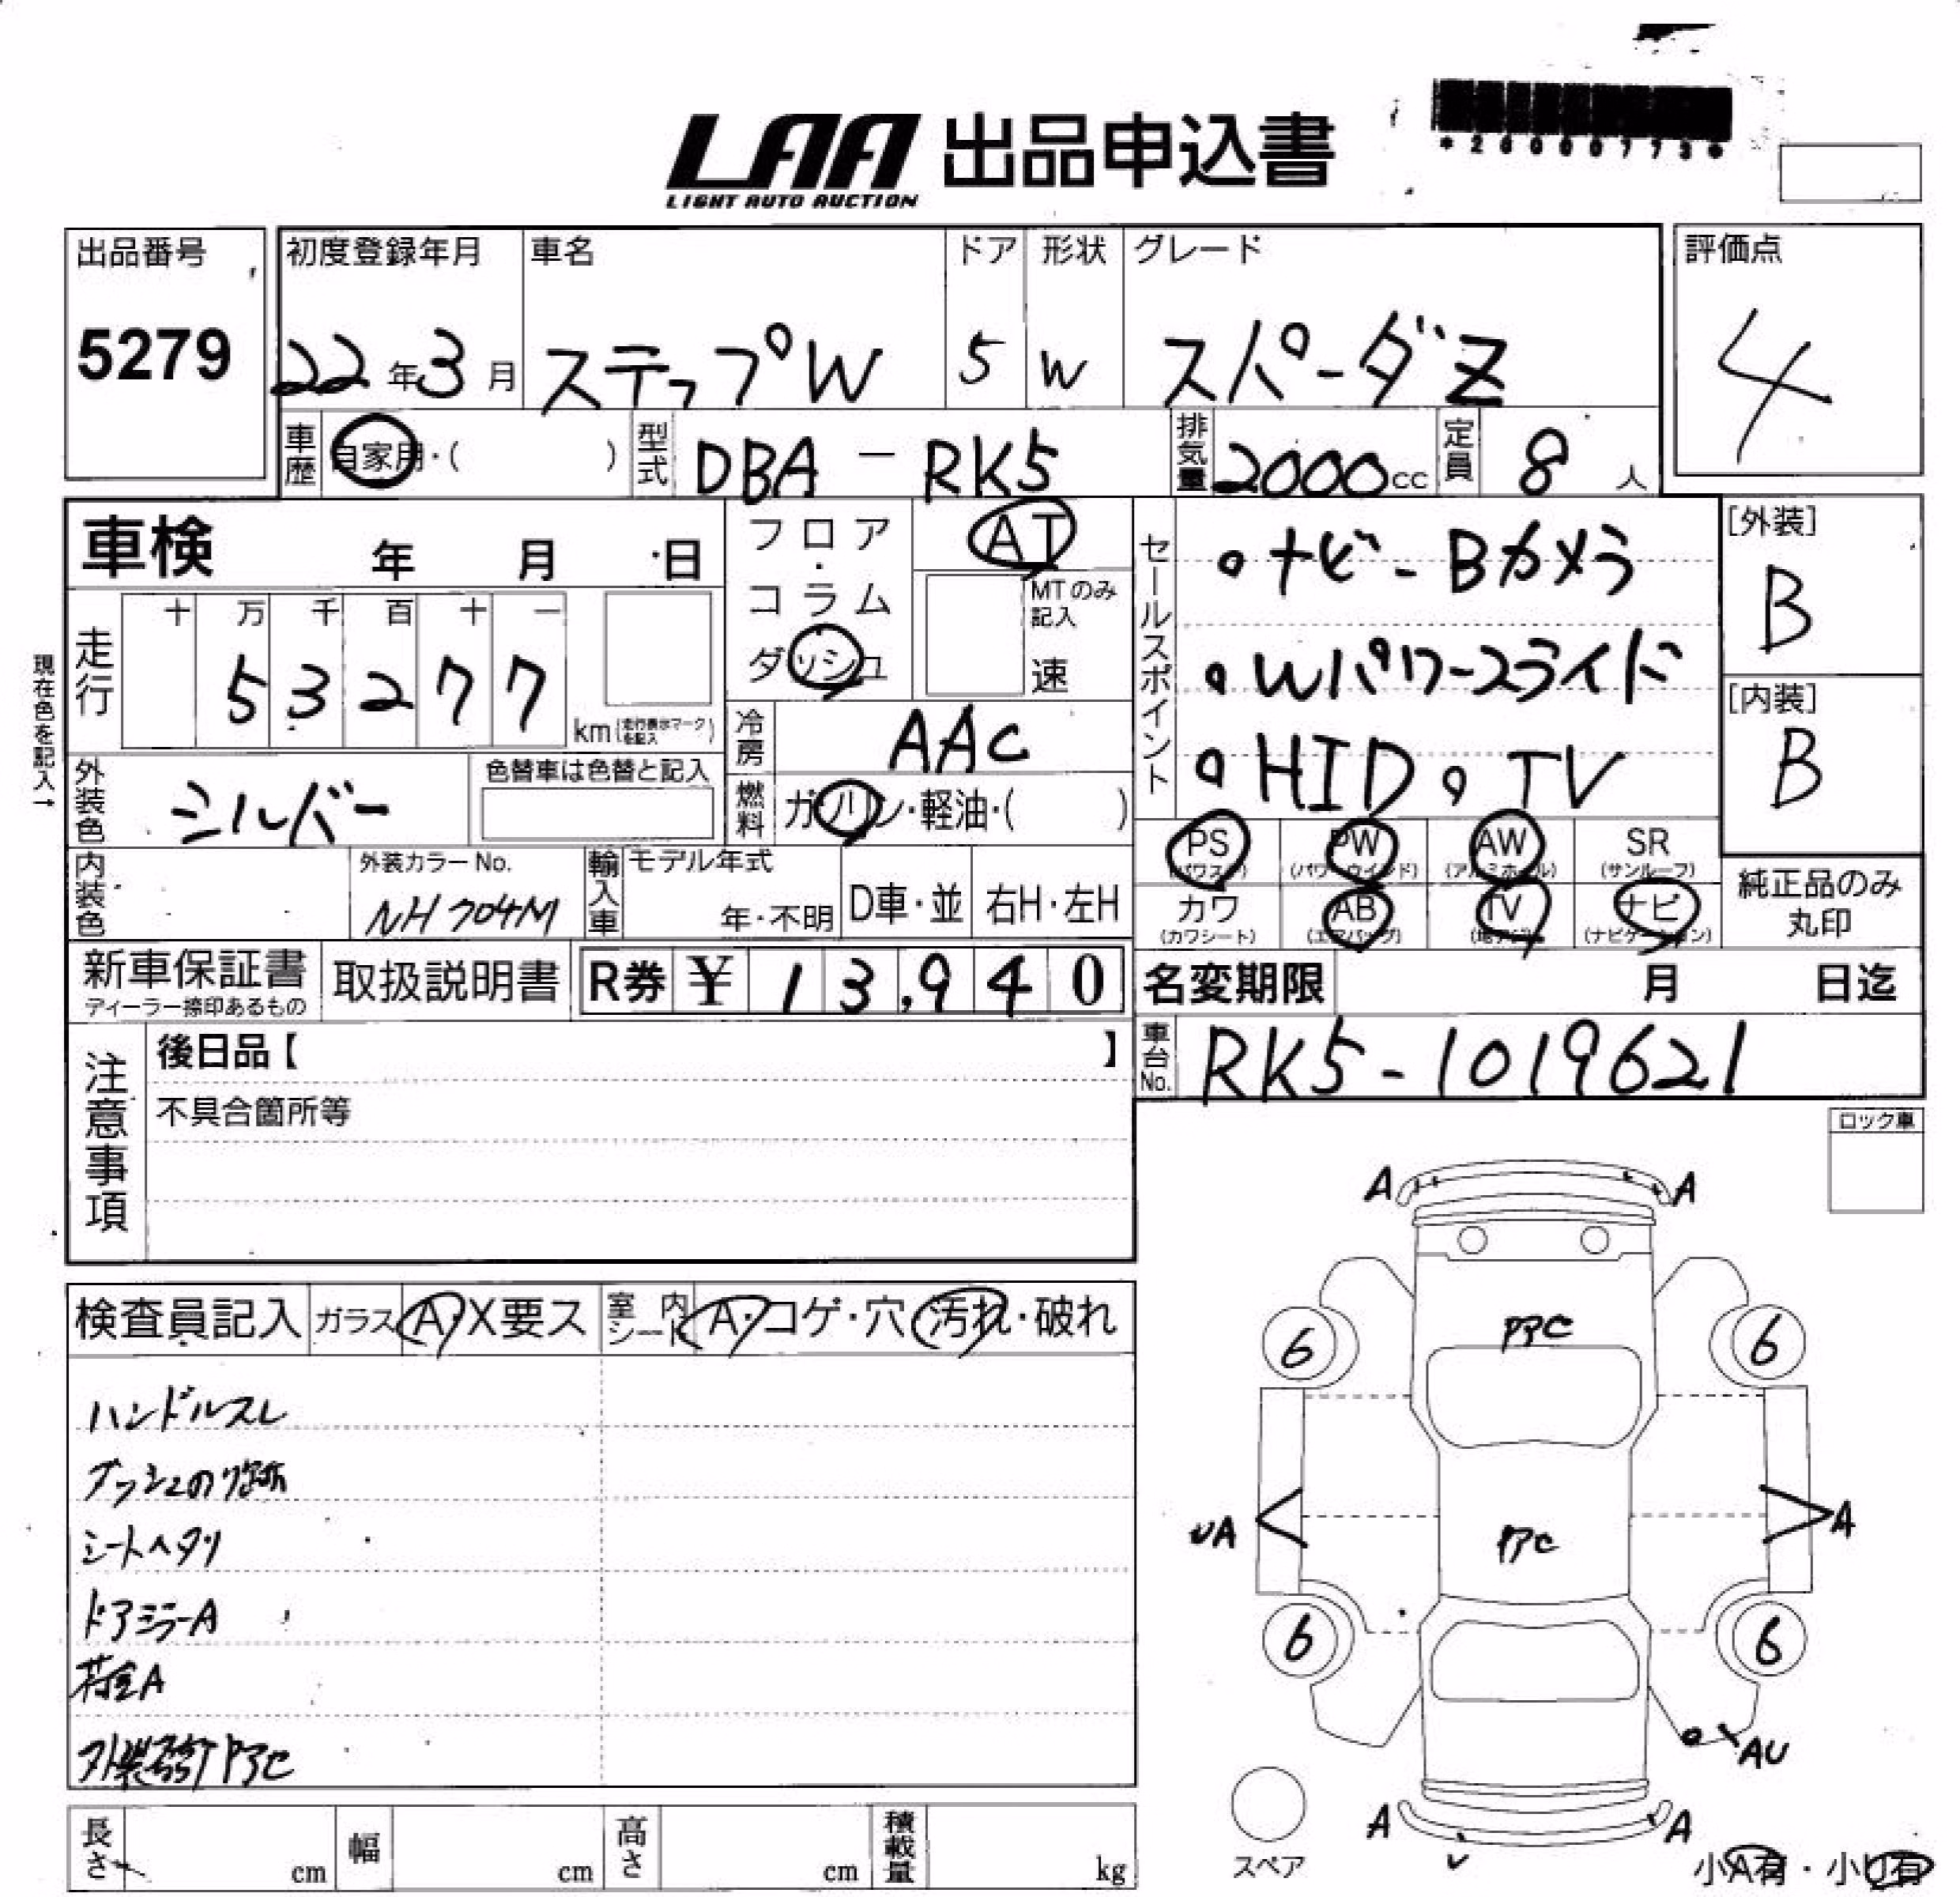 LAA 出品申込書
LIGHT AUTO AUCTION
*20000773*
出品番号 5279
初度登録年月 22年3月
車名 ステップW
ドア 5
形状 W
グレード スパーダZ
評価点 4
車歴 自家用・( )
型式 DBA-RK5
排気量 2000cc
定員 8人
車検 年 月 日
フロア・コラム
ダッシュ
AT
MTのみ記入
速
セールスポイント
・ナビ-Bカメラ
・Wパワースライド
・HID・TV
[外装] B
[内装] B
現在色を記入→
走行 十 万 千 百 十 一
53277
km(走行表示マークを記入)
冷房 AAC
外装色 シルバー
色替車は色替と記入
燃料 ガソリン・軽油・( )
内装色
外装カラーNo. NH704M
輸入車 モデル年式 年・不明
D車・並 右H・左H
PS (パワステ)
PW (パワーウインド)
AW (アルミホイール)
SR (サンルーフ)
カワ (カワシート)
AB (エアバッグ)
TV (地デジ)
ナビ (ナビゲーション)
純正品のみ丸印
新車保証書 ディーラー捺印あるもの
取扱説明書
R券 ¥13,940
名変期限 月 日迄
車台No. RK5-1019621
注意事項
後日品【 】
不具合箇所等
ロック車
検査員記入 ガラス A・X要ス
室内シート A・コゲ・穴・汚れ・破れ
ハンドルスレ
ダッシュのり跡
シートヘタリ
ドアミラーA
荷室A
A A
6 6
UA A
6 6
AU
A A
スペア
小A有・小U有
長さ cm 幅 cm 高さ cm 積載量 kg